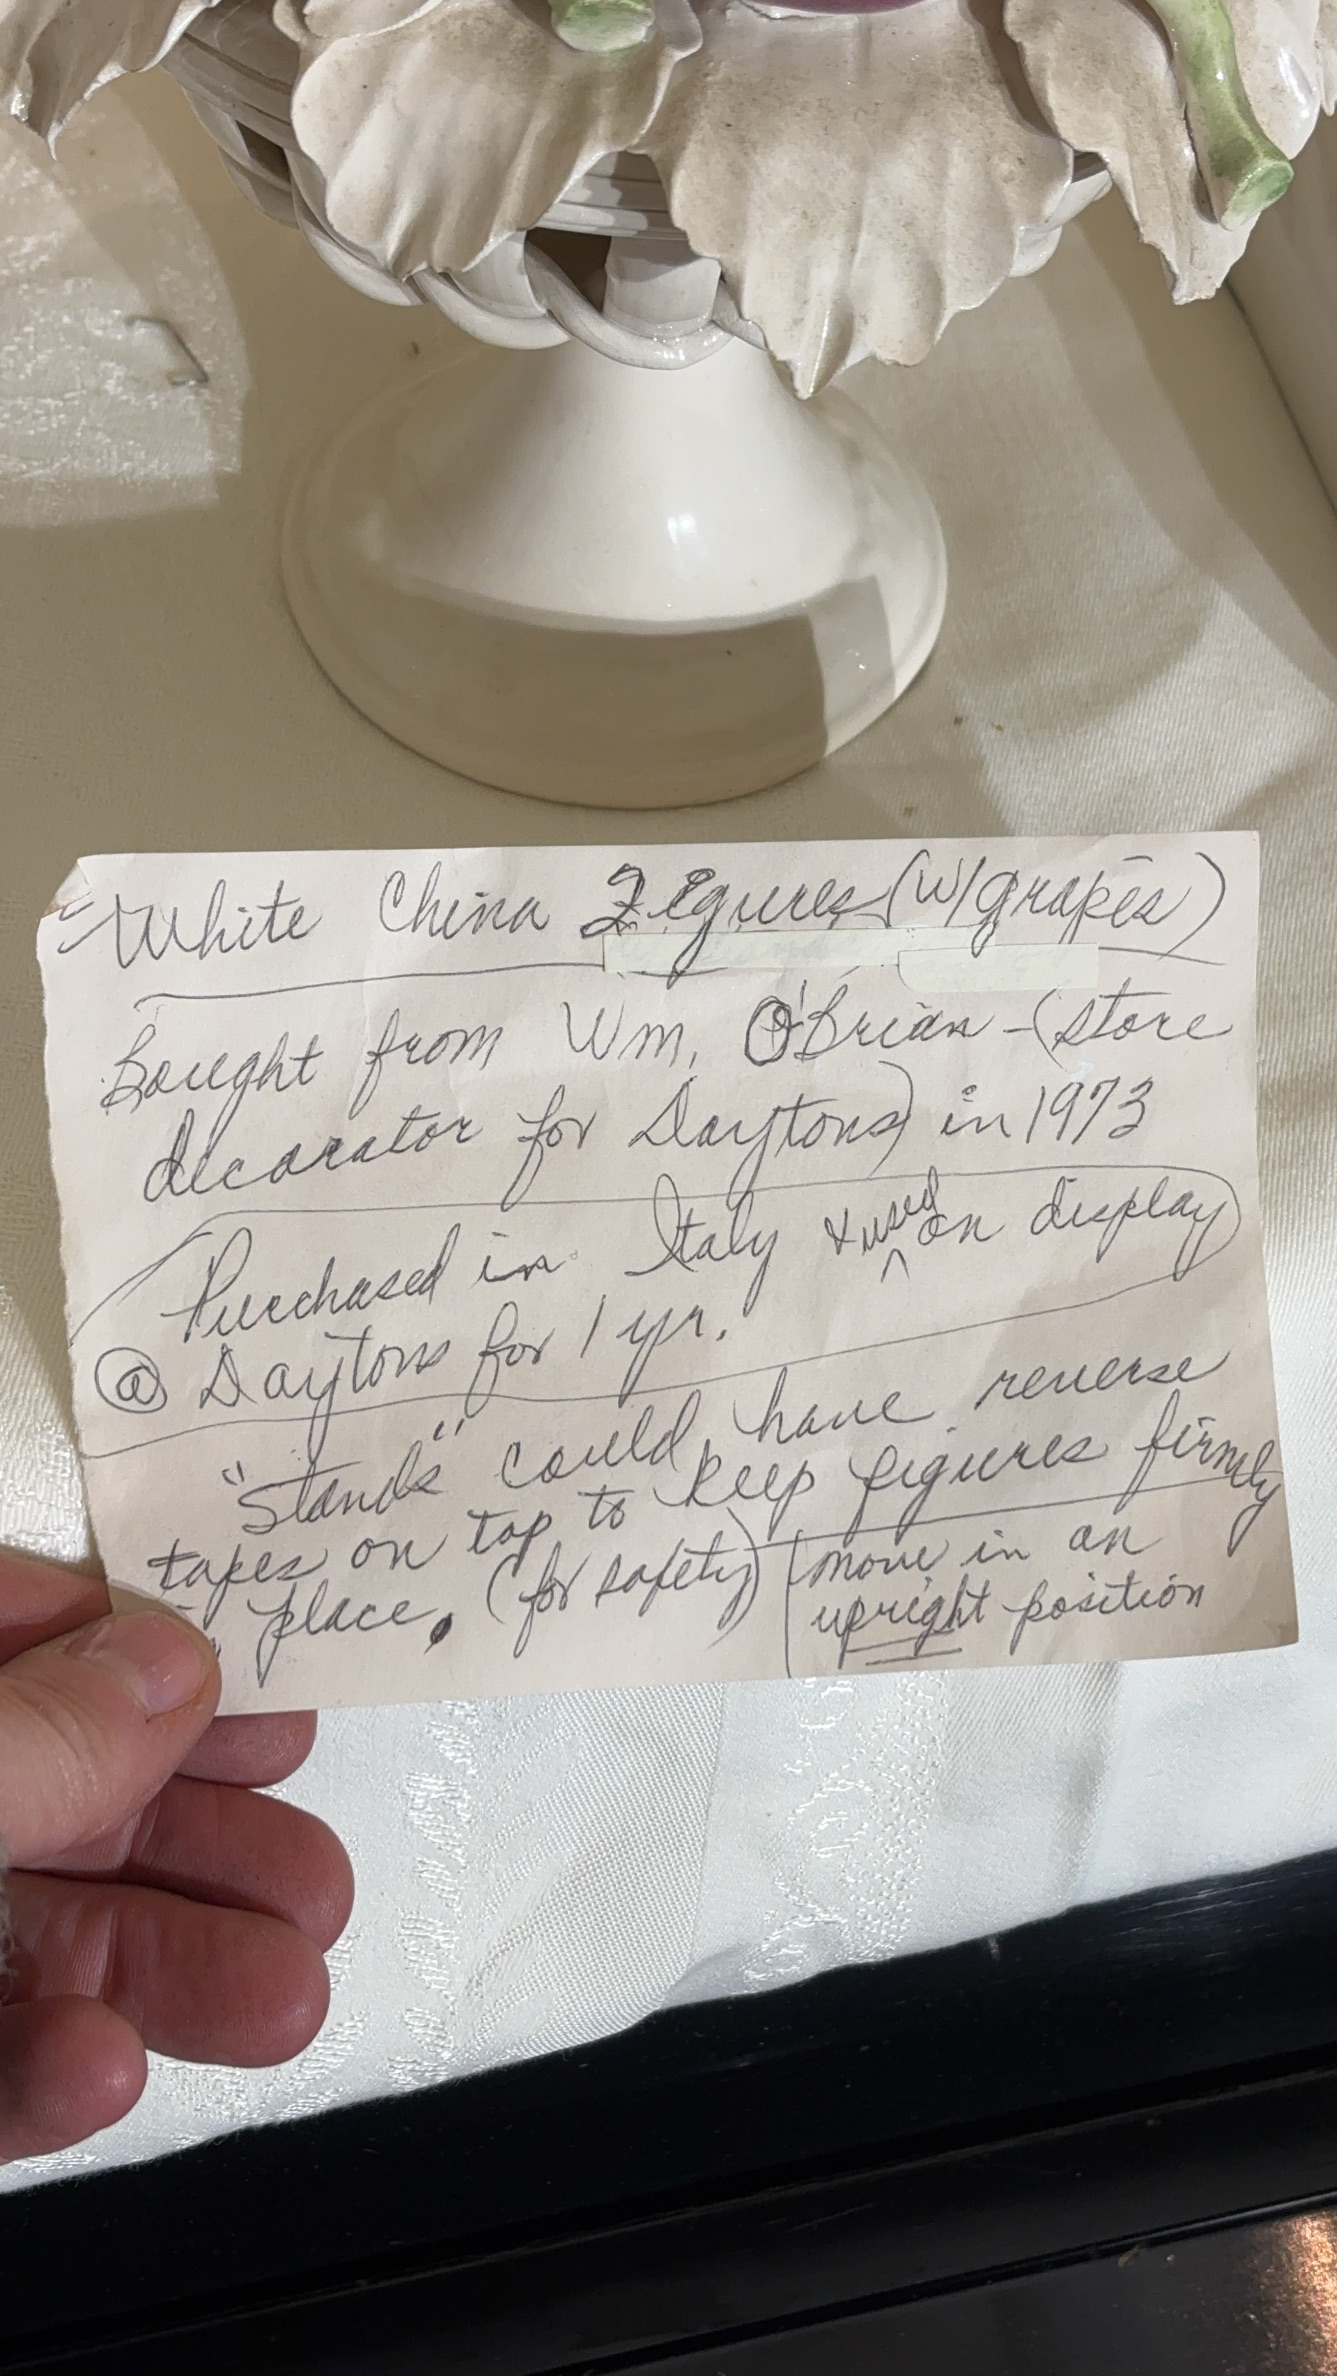 White China Figures (W/grapes)
Bought from Wm. O'Brian - (store
decorator for Daytons) in 1973
Purchased in Italy & used on display
@ Daytons for 1 yr.
"Stands" could have reverse
tapes on top to keep figures firmly
in place. (for safety) (move in an
upright position